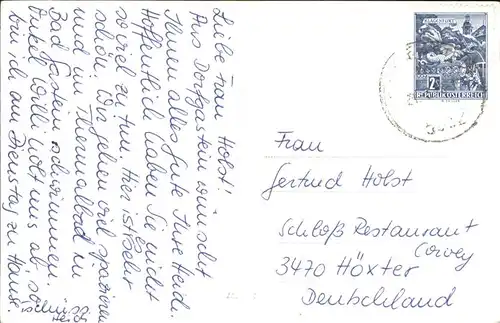 Liebe Frau Holst!
Aus Dorfgastein wünscht
Ihnen alles Gute Ihre Heidi.
Hoffentlich haben Sie nicht
so viel zu tun. Hier ist es sehr
schön. Wir gehen viel spazieren
und im Thermalbad in
Bad Gastein schwimmen.
Onkel Willi holt uns ab, so
bin ich am Dienstag zu Hause.
Tschüssi
Heidi
KLAGENFURT
2
REPUBLIK ÖSTERREICH
Frau
Gertrud Holst
Schloß Restaurant
Corvey
3470 Höxter
Deutschland